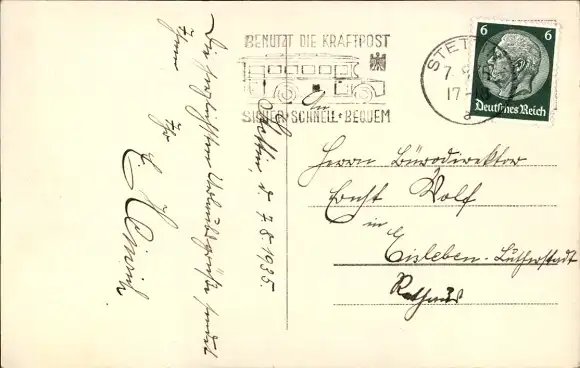 BENUTZT DIE KRAFTPOST
SICHER + SCHNELL + BEQUEM
STET
7. 8.
17-18
6 6
Deutsches Reich
An
Herrn Bürodirektor
Ernst Wolf
in
Eisleben-Lutherstadt
Rathaus
Stettin, d. 7.8.1935.
Die herzlichsten Urlaubsgrüße sendet
Ihnen
Ihr
E. Heinrich.